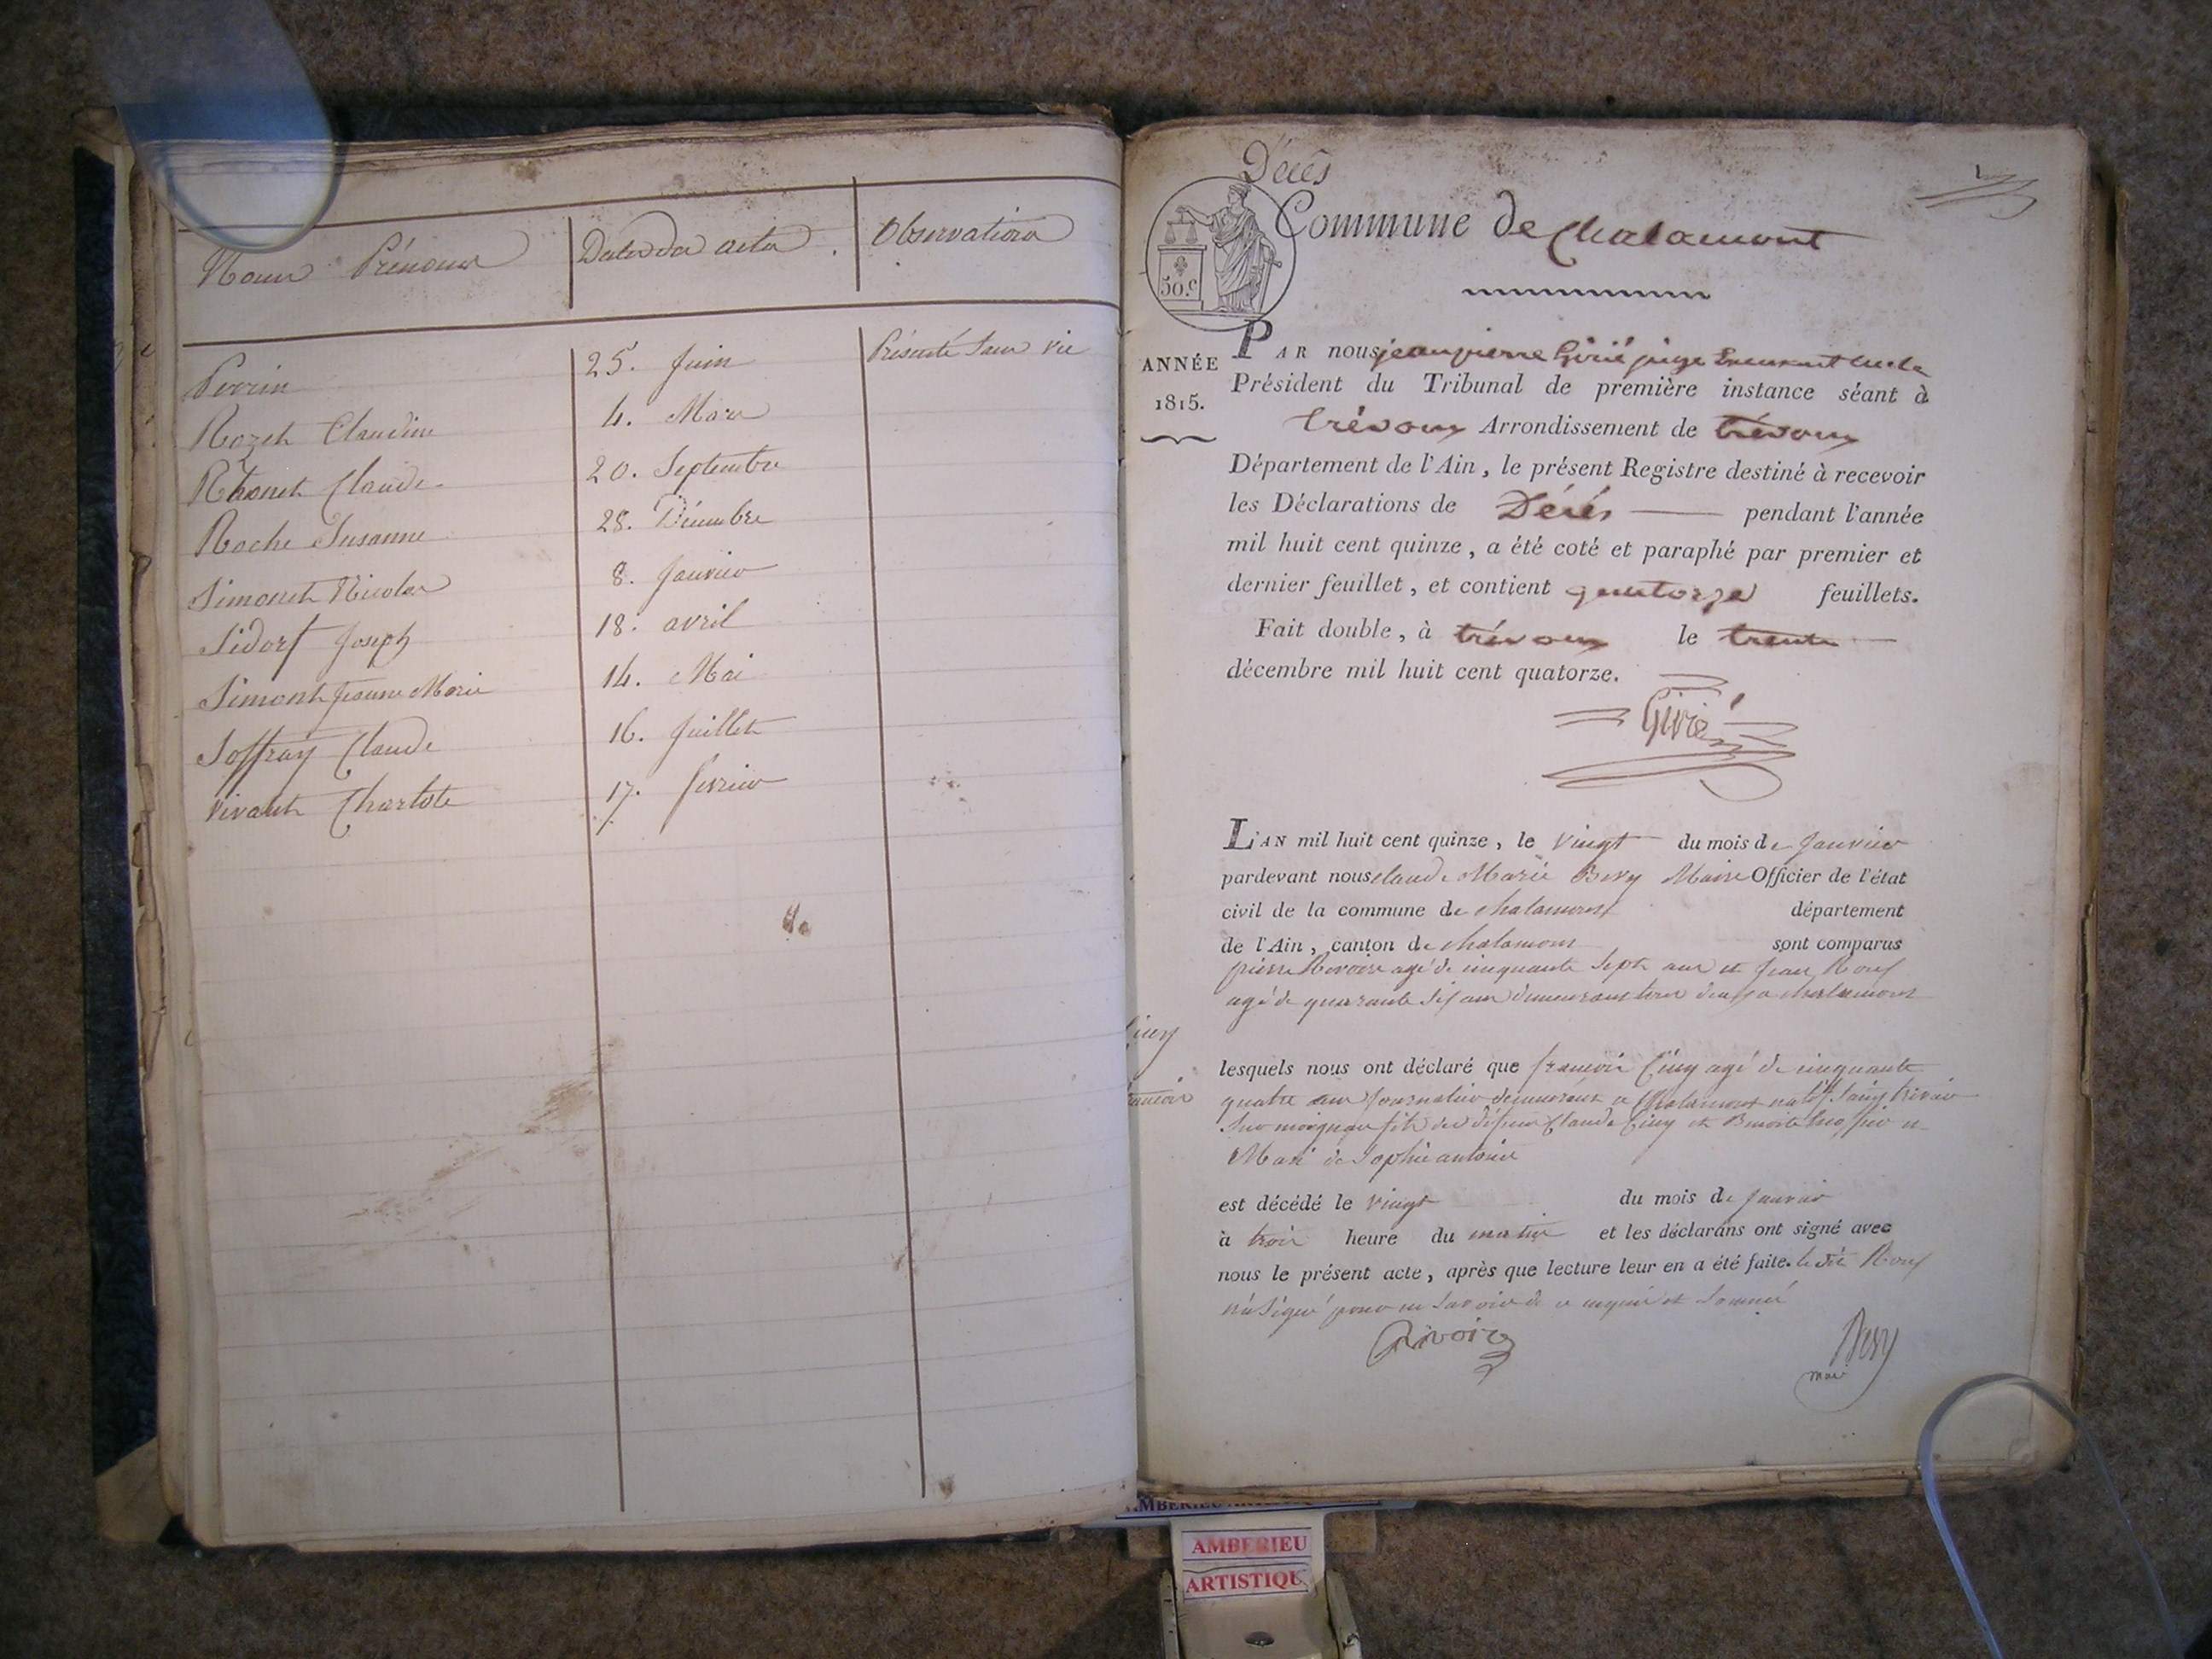 Noms Prénoms Dates des actes Observations
Perrin 25. Juin Présenté Sans vie
Rozet Claudine 4. Mars
Thonet Claude 20. Septembre
Roche Susanne 28. Décembre
Simonet Nicolas 8. Janvier
Sidorf Joseph 18. avril
Simont Jeanne Marie 14. Mai
Soffray Claude 16. Juillet
Vivant Charlote 17. fevrier
Décès
Commune de Chalamont
50.c
ANNÉE
1815.
PAR nous jean pierre Girié juge
Président du Tribunal de première instance séant à
trévoux Arrondissement de trévoux
Département de l'Ain, le présent Registre destiné à recevoir
les Déclarations de Décés pendant l'année
mil huit cent quinze, a été coté et paraphé par premier et
dernier feuillet, et contient quatorze feuillets.
Fait double, à trévoux le trente
décembre mil huit cent quatorze.
Girié
L'AN mil huit cent quinze, le vingt du mois de Janvier
pardevant nous claude Marie Bery Maire Officier de l'état
civil de la commune de chalamont département
de l'Ain, canton de chalamont sont comparus
pierre Revoire agé de cinquante Sept ans et Jean Rouf
agé de quarante Six ans demeurans tous deux a chalamont
lesquels nous ont déclaré que francois Ciny agé de cinquante
quatre ans Journalier demeurant a Chalamont natif Saint trivier
Sur moignan fils des défunts Claude Ciny et Benoite et
Mari de Sophie antoine
est décédé le vingt du mois de Janvier
à trois heure du matin et les déclarans ont signé avec
nous le présent acte, après que lecture leur en a été faite. le dit Rouf
n'a Signé pour ne Savoir de ce enquis et Sommé
Rivoire
Bery
maire
AMBERIEU
ARTISTIQU